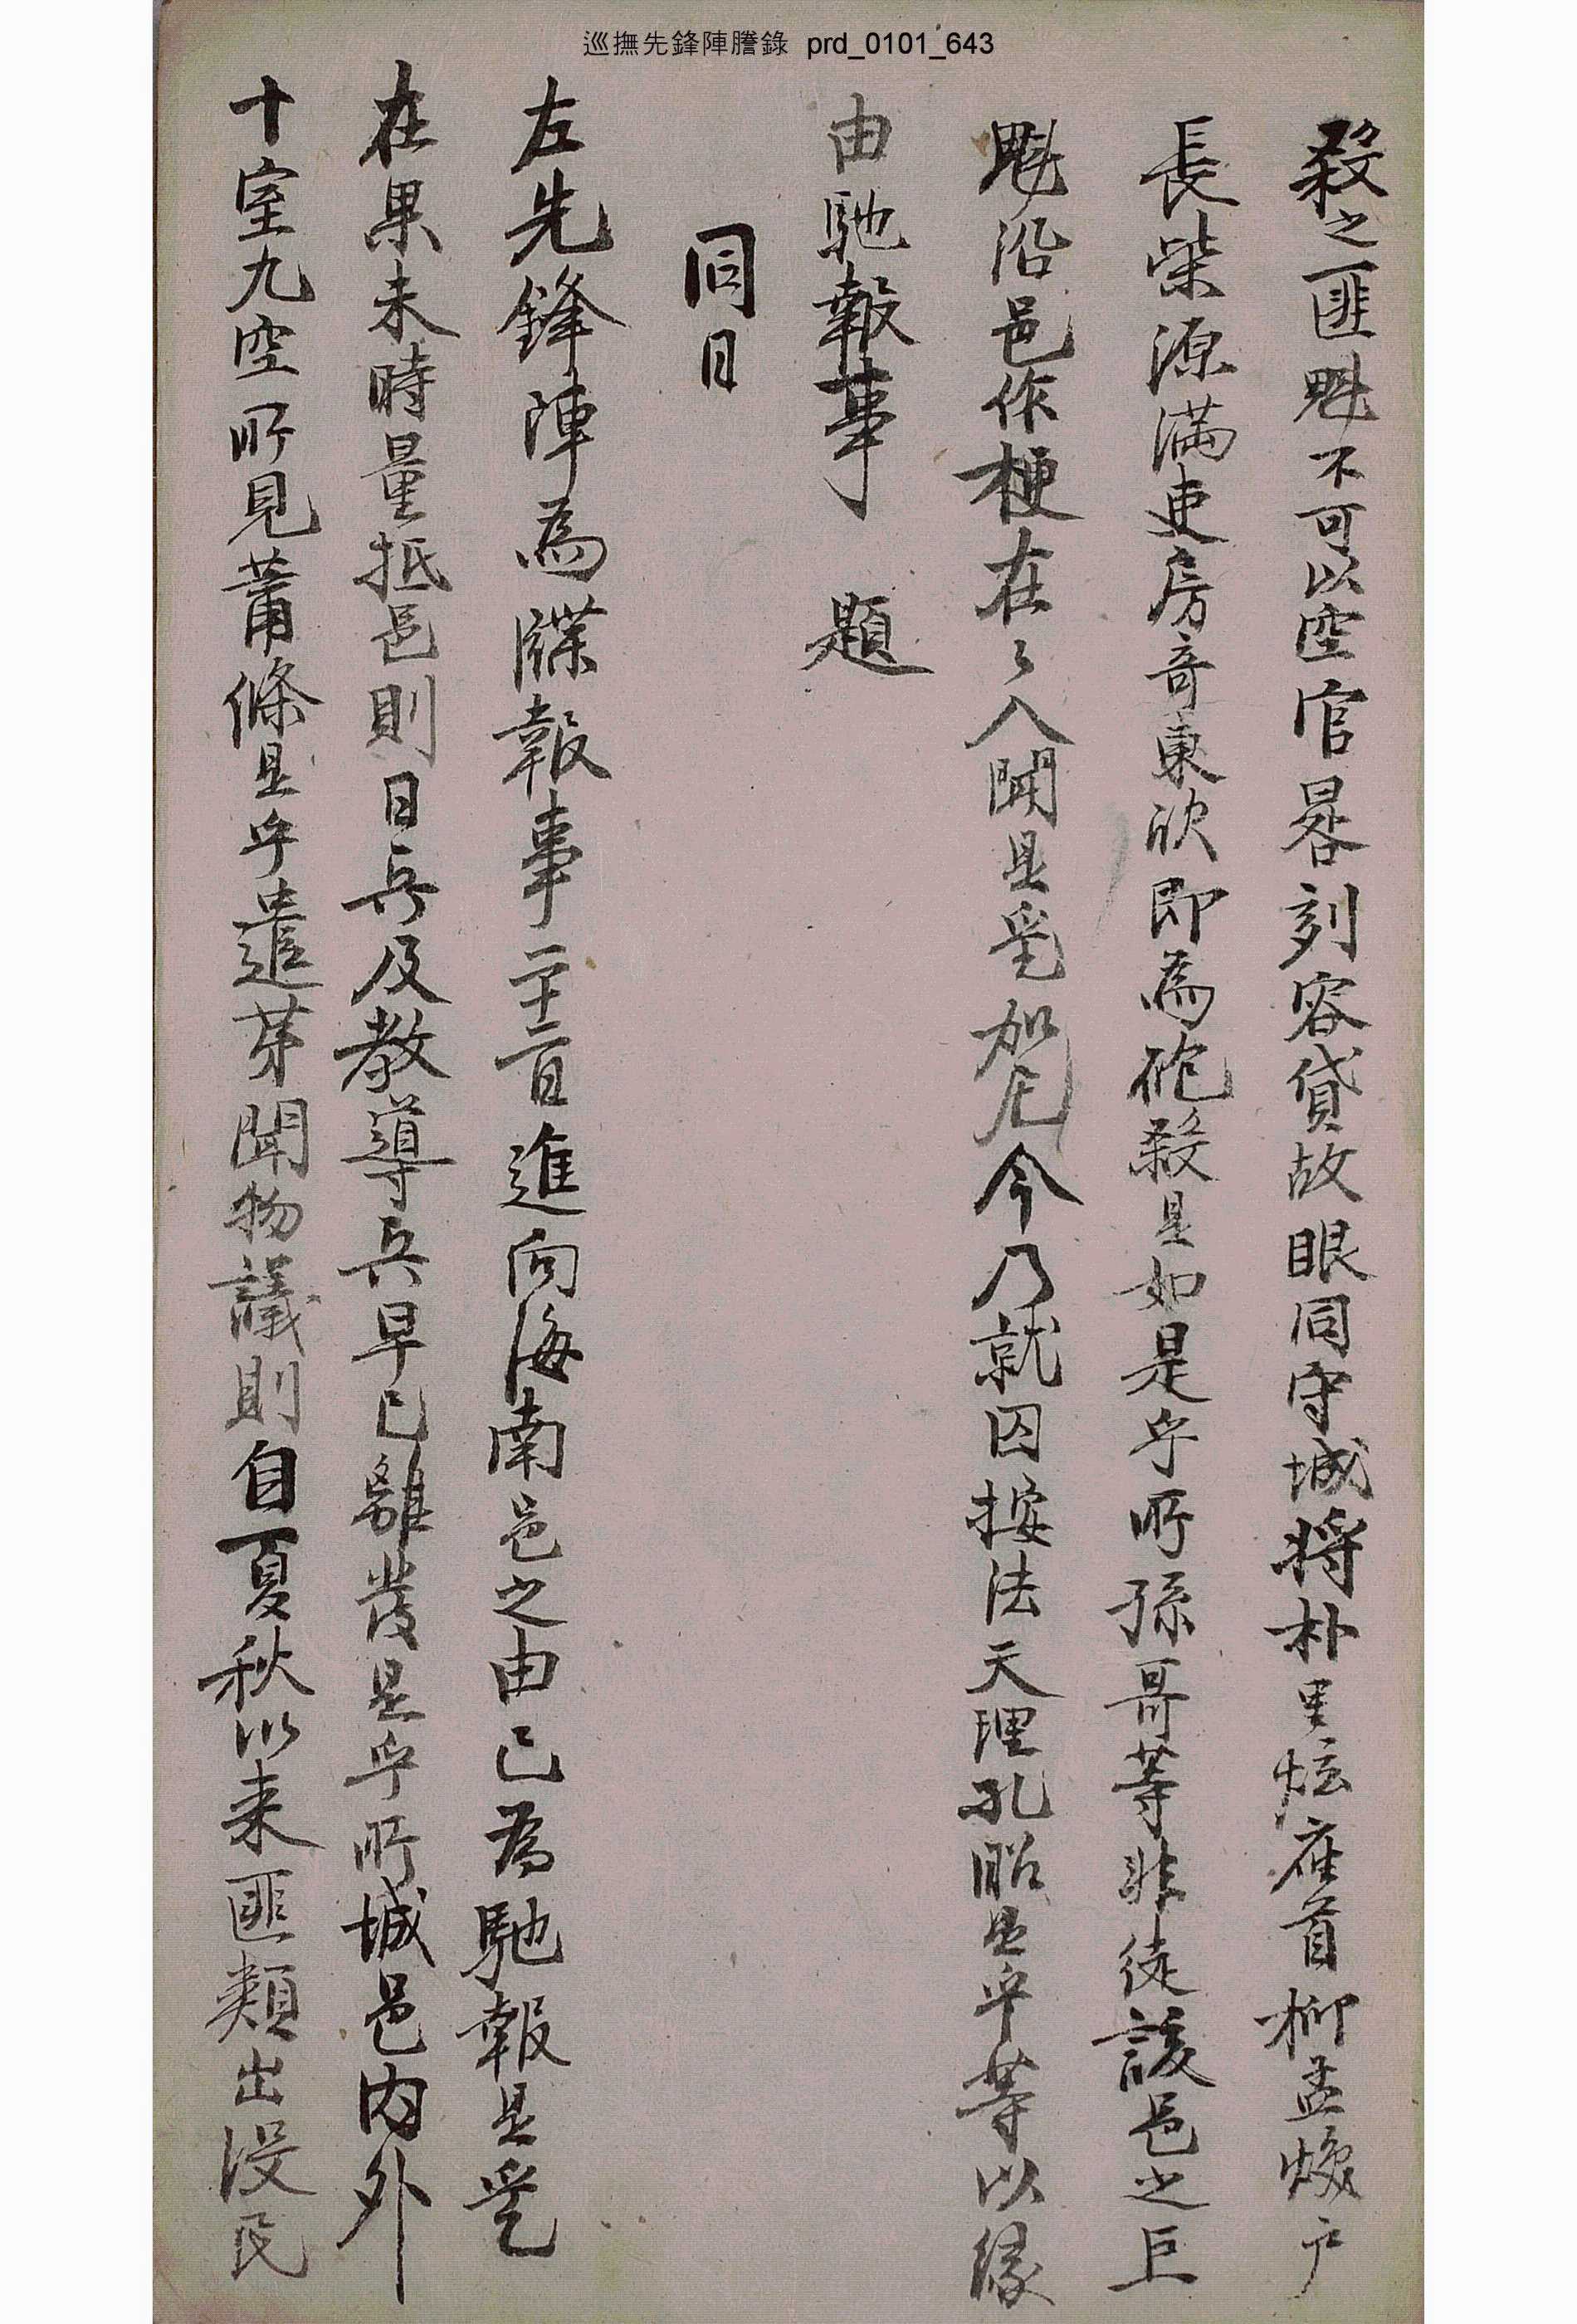 巡撫先鋒陣謄錄 prd_0101_643
殺之匪魁不可以空官晷刻容貸故眼同守城將朴里炫座首柳孟煥戶
長柴源滿吏房奇東欣即爲砲殺是如是乎所孫哥等非徒該邑之巨
魁沿邑作梗在々入聞是乎㫆今乃就囚按法天理孔昭是乎等以緣
由馳報事 題
同日
左先鋒陣爲牒報事二十二日進向海南邑之由已爲馳報是乎
在果未時量抵邑則日兵及教導兵早已離發是乎所城邑內外
十室九空所見蕭條是乎遣芽聞物議則自夏秋以来匪類出沒民